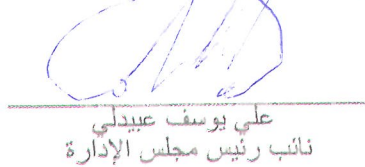 علي يوسف عبيدلي
نائب رئيس مجلس الإدارة